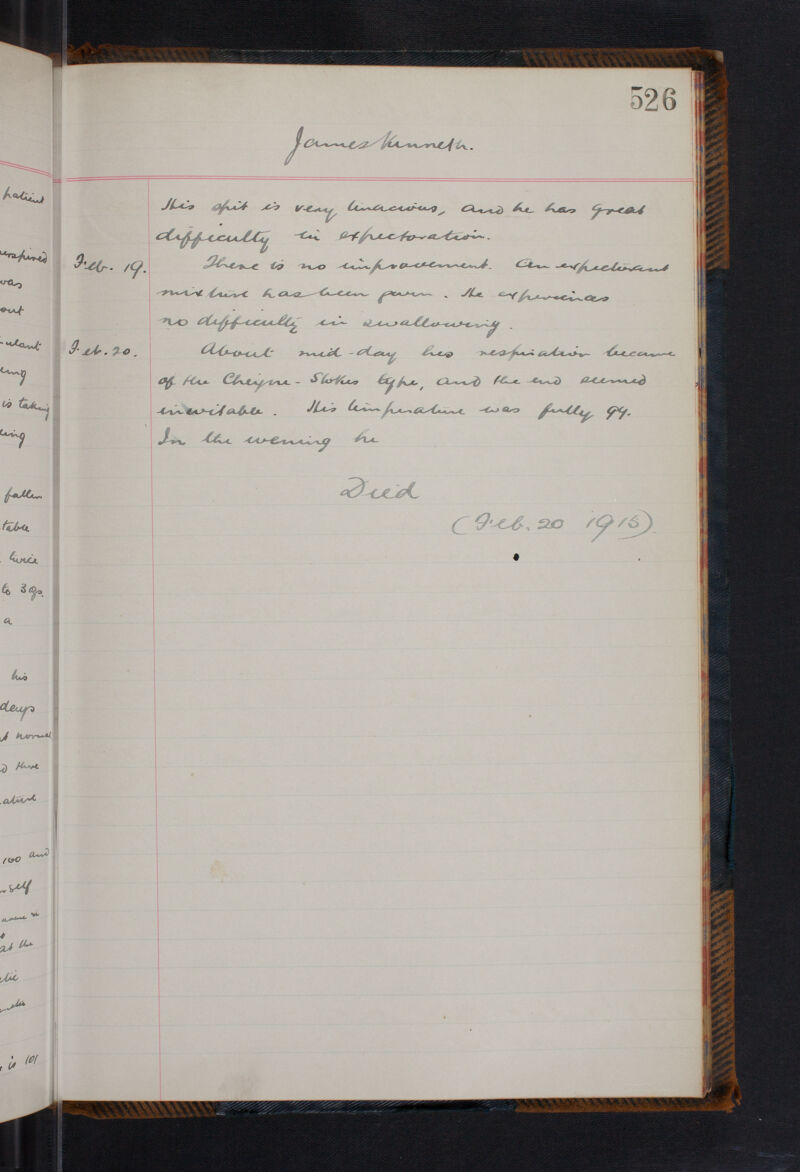 patient
was
out
is taking
fallen
table
twice
a
his
days
at the
is 101
526
James Kenneth.
His spit is very tenacious, and he has great
difficulty in expectoration.
Feb. 19. There is no improvement. An expectorant
mixture has been given. He experiences
no difficulty in swallowing.
Feb. 20. About mid-day his respiration became
of the Cheyne-Stokes type, and the end seemed
inevitable. His temperature was fully 99.
In the evening he
Died
(Feb. 20 1915)